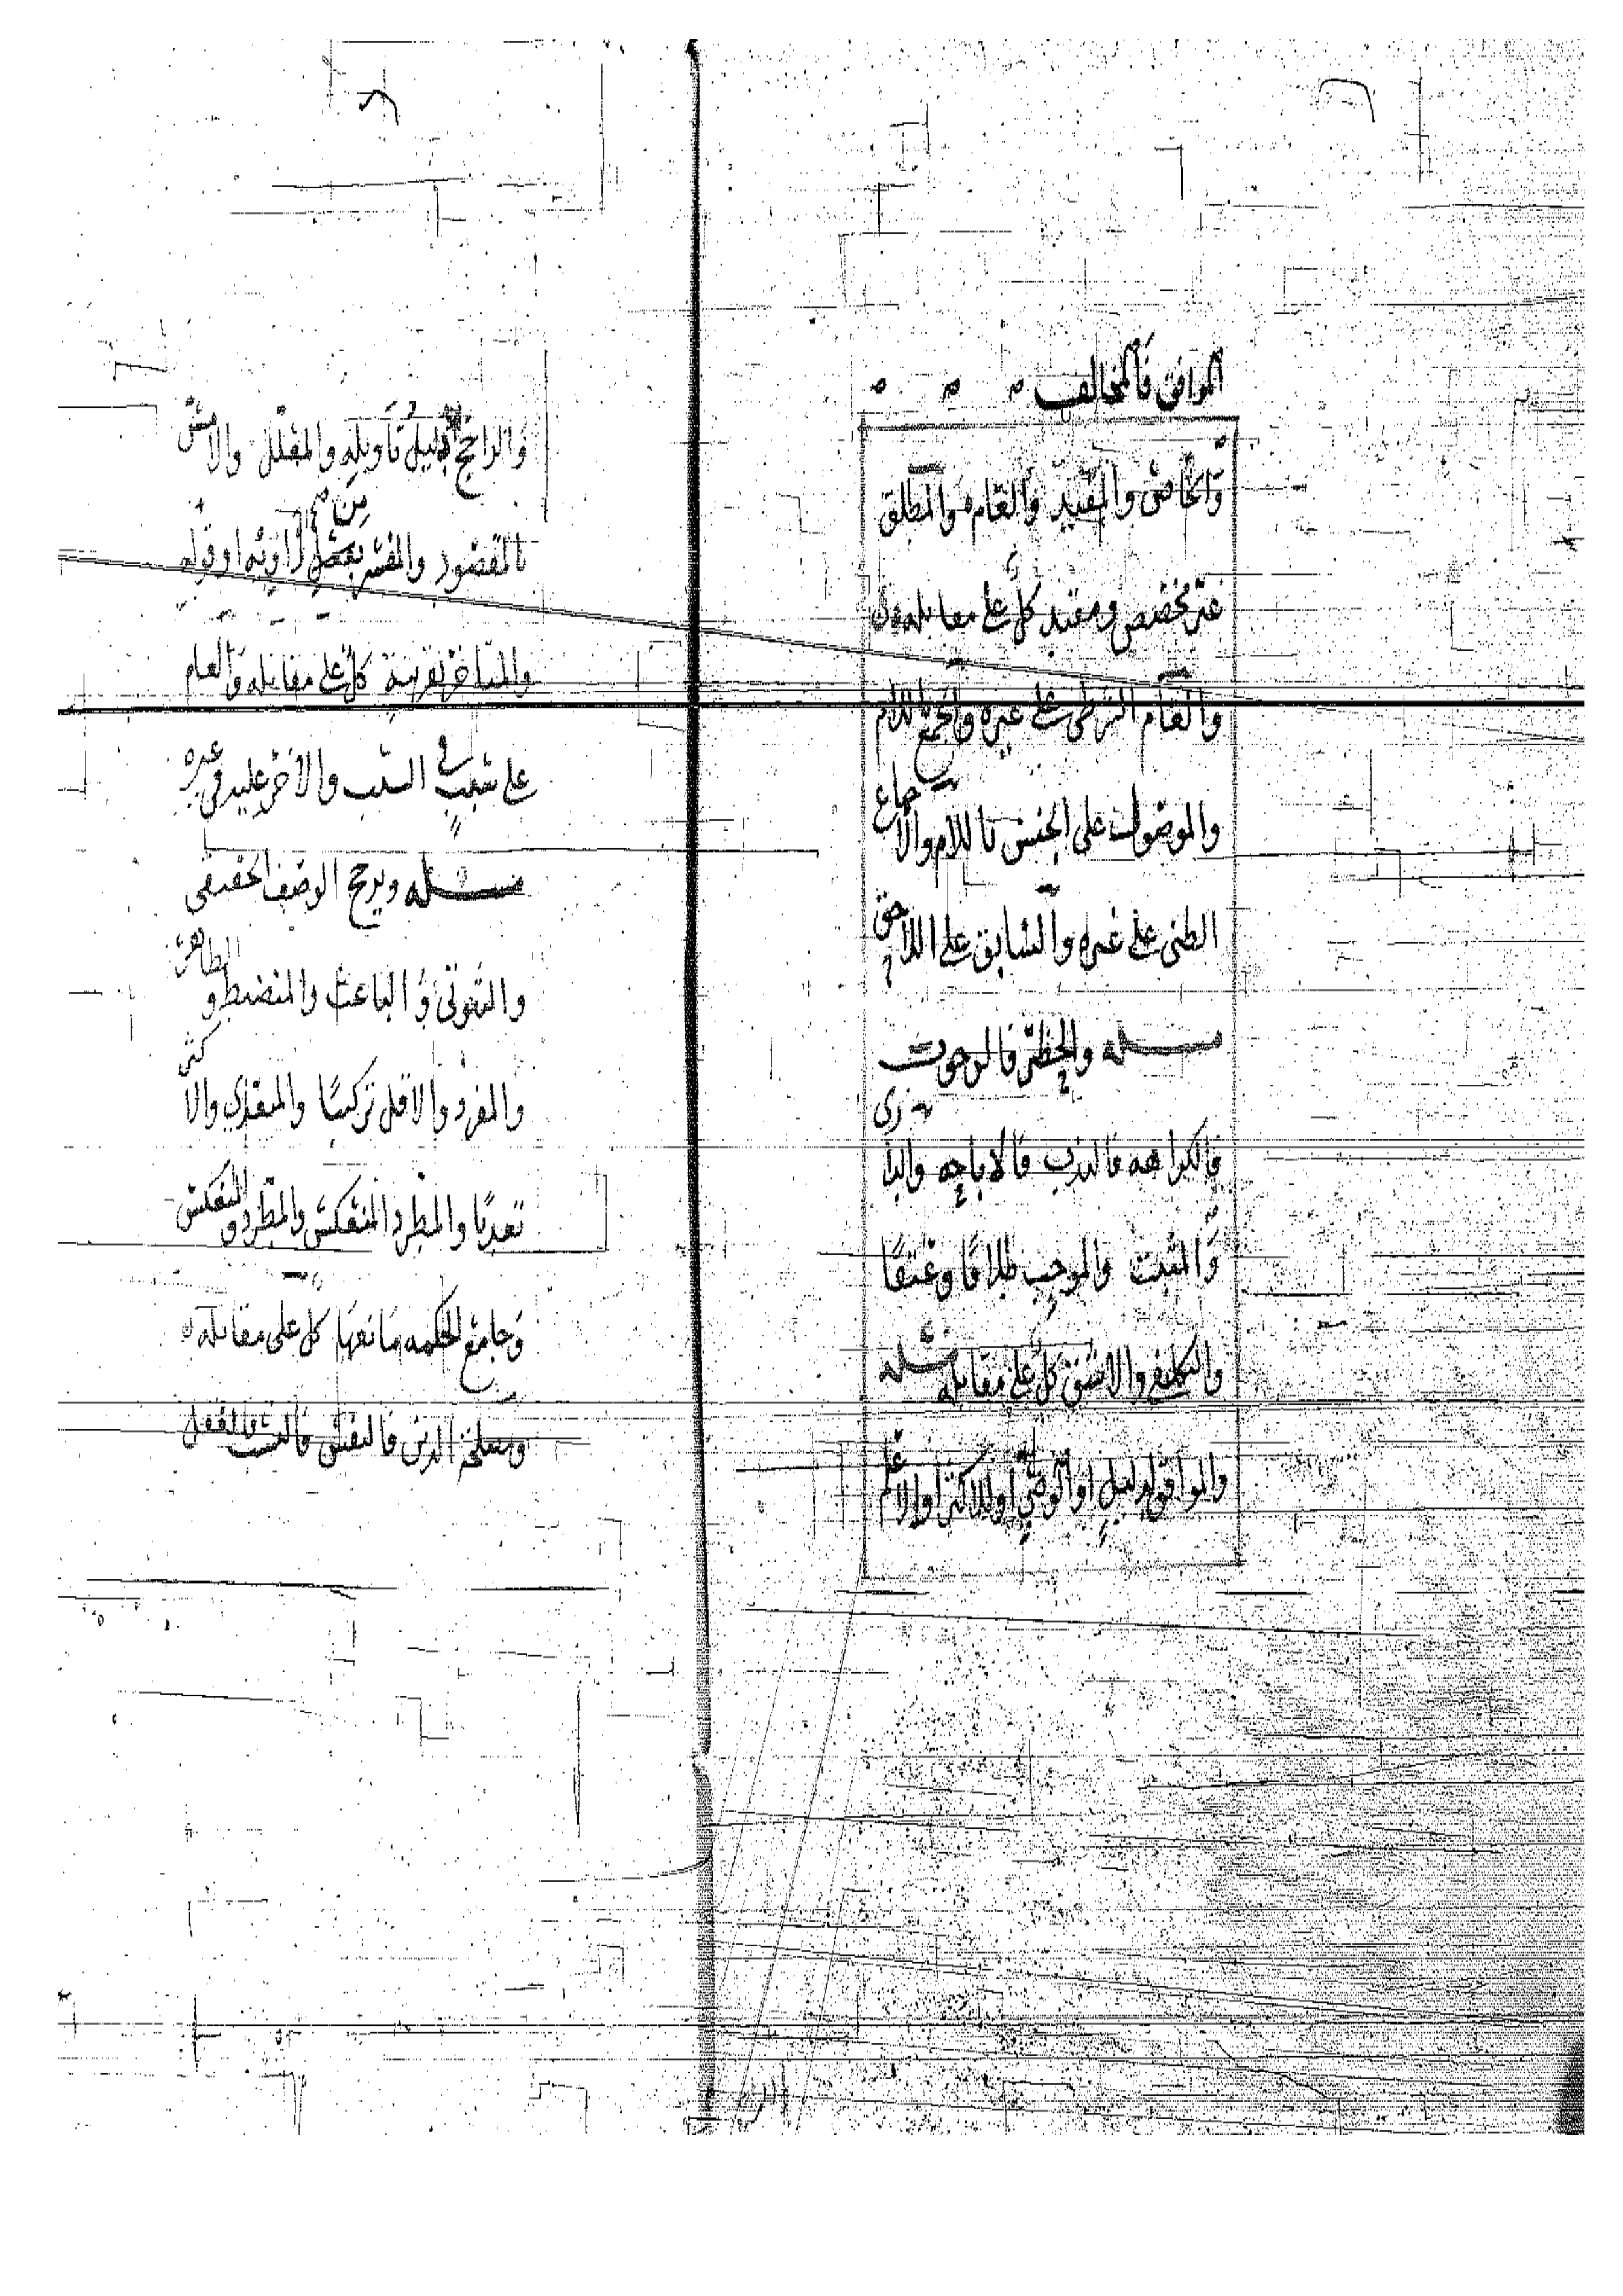 الموافق فالمخالف
والخاص والمقيد والعام والمطلق
غير مخصص ومقيد كل على مقابله
والعام الشرطي على غيره والجمع باللام
والموصول على الجنس باللام والاجماع
الظني على غيره والسابق على اللاحق
مسله والحظر فالوجوب
فالكراهه فالندب فالاباحه والدارى
والمثبت والموجب طلاقا وعتقا
والتكليفي والاشق كل على مقابله مسله
والموافق لدليل او لوصي او للاكثر او الاعلم
والراجح دليل تاويله والمعلل والامس
بالمقصود والمفسر من راويه او قوله
والمتاخر بقرينة كل على مقابله والعام
على سبب في السبب والاخر عليه في غيره
مسله ويرجح الوصف الحقيقي
والثبوتي والباعث والمنضبط والظاهر
والمفرد والاقل تركيبا والمتعدي والاكثر
تعديا والمطرد المنعكس والمطرد والمنعكس
وجامع الحكمه مانعها كل على مقابله
ومصلحة الدين فالنفس فالنسب فالعقل